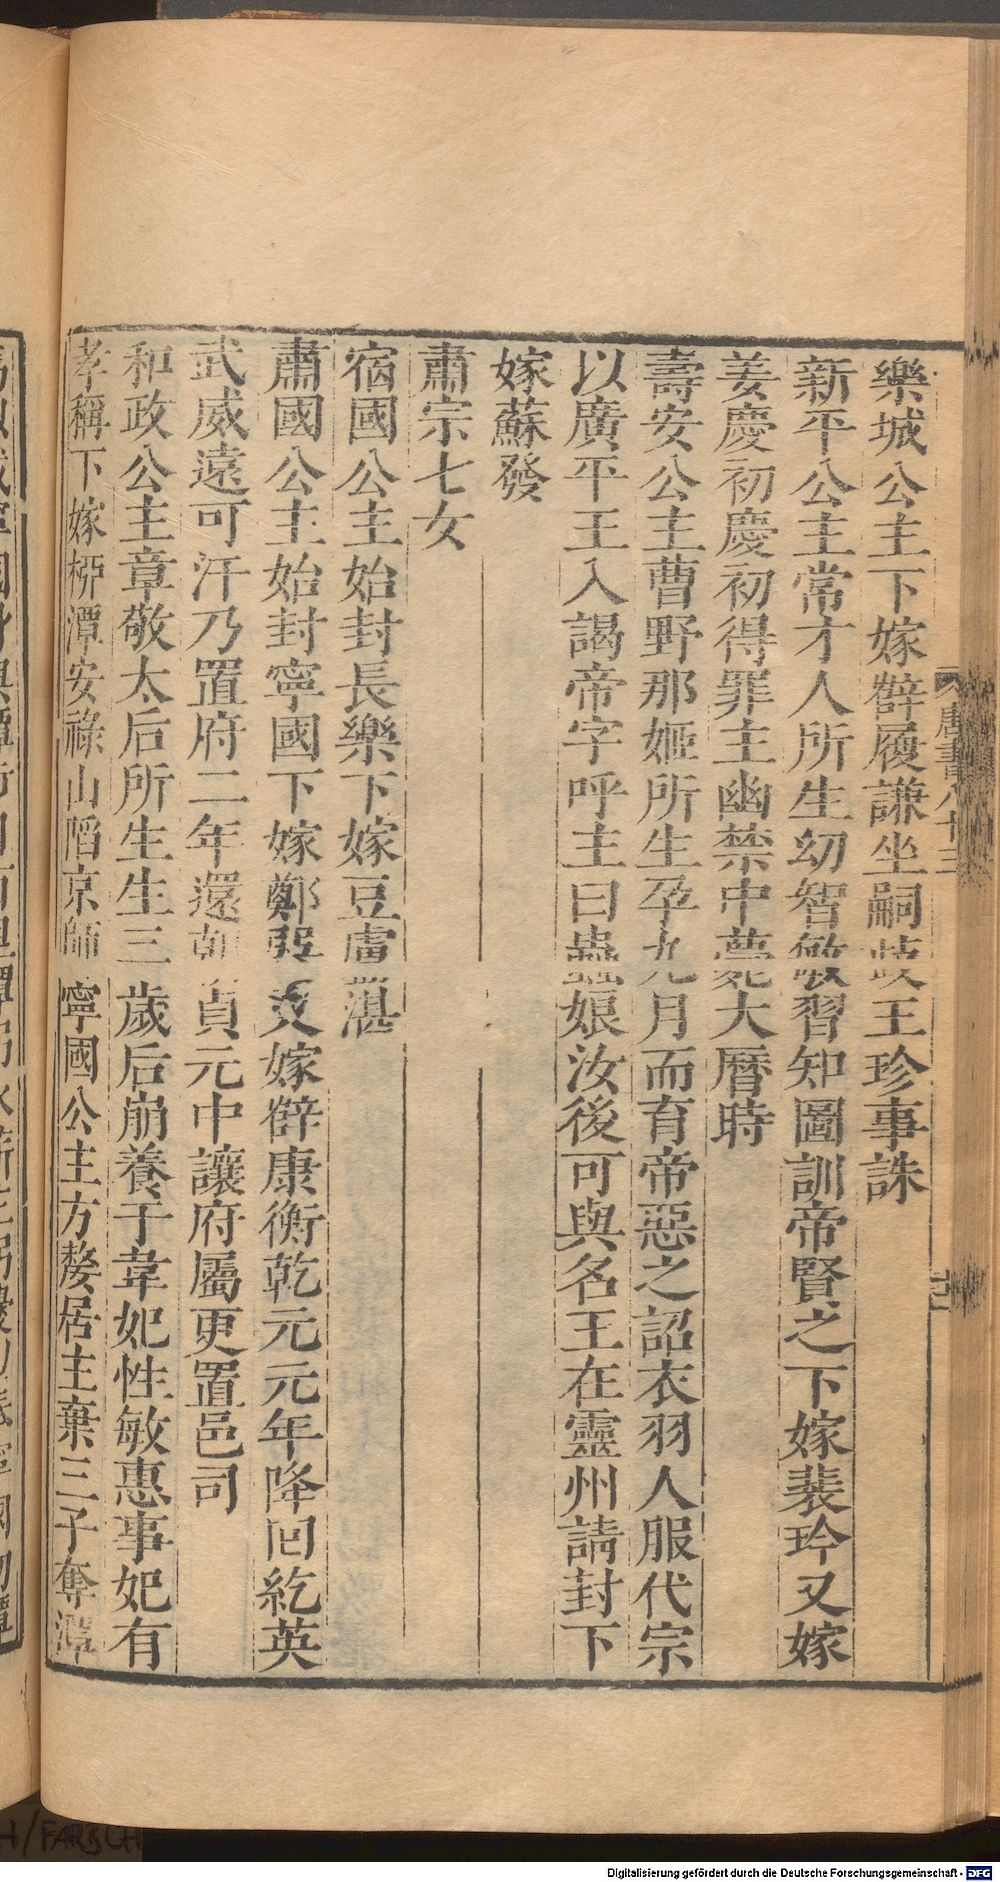 樂城公主下嫁薛履謙坐嗣岐王珍事誅
新平公主常才人所生幼智敏習知圖訓帝賢之下嫁裴玲又嫁
姜慶初慶初得罪主幽禁中薨大曆時
壽安公主曹野那姬所生孕九月而育帝惡之詔衣羽人服代宗
以廣平王入謁帝字呼主曰蟲娘汝後可與名王在靈州請封下
嫁蘇發
肅宗七女
宿國公主始封長樂下嫁豆盧湛
肅國公主始封寧國下嫁鄭巽又嫁薛康衡乾元元年降回紇英
武威遠可汗乃置府二年還朝貞元中讓府屬更置邑司
和政公主章敬太后所生生三歲后崩養于韋妃性敏惠事妃有
孝稱下嫁柳潭安祿山陷京師寧國公主方嫠居主棄三子奪潭
唐書八十三
Digitalisierung gefördert durch die Deutsche Forschungsgemeinschaft - DFG